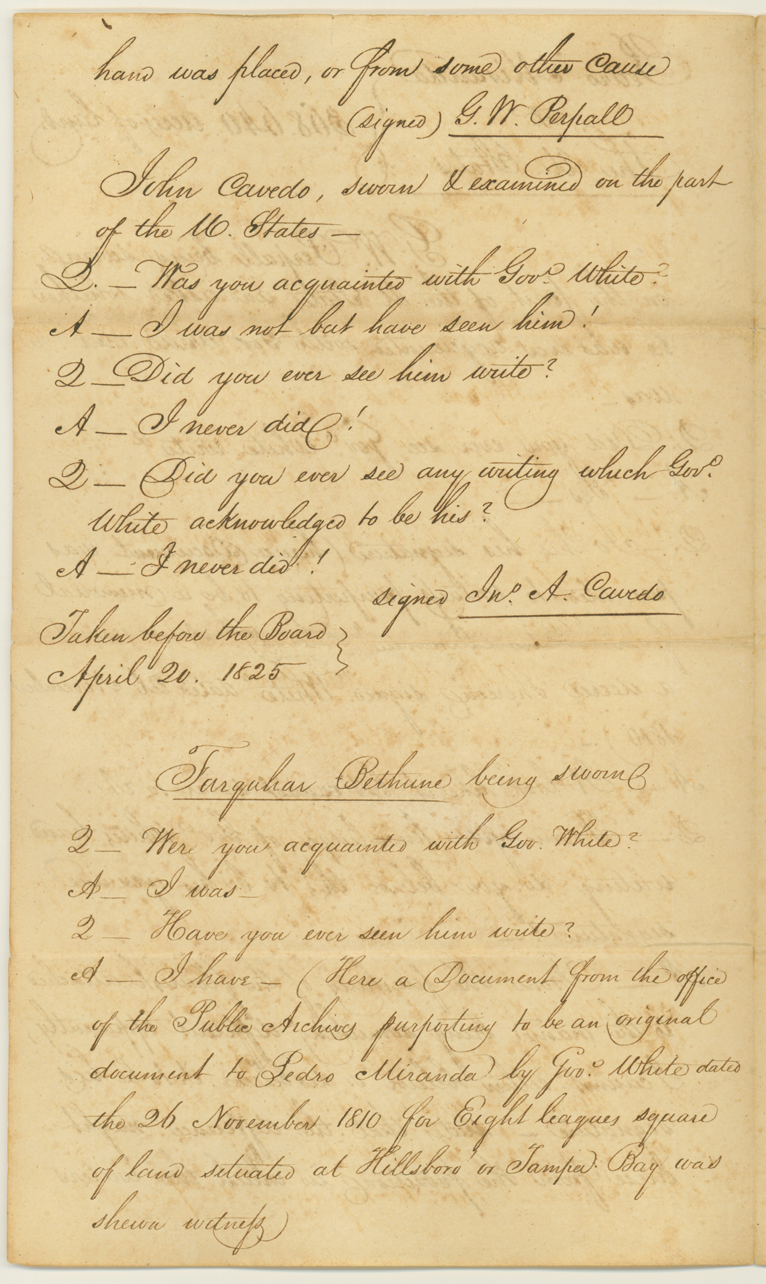 hand was placed, or from some other cause
(signed) G. W. Perpall
John Cavedo, sworn & examined on the part
of the U. States —
Q. — Was you acquainted with Govr. White?
A — I was not but have seen him!
Q — Did you ever see him write?
A — I never did!
Q — Did you ever see any writing which Govr.
White acknowledged to be his?
A — I never did!
signed Jno. A. Cavedo
Taken before the Board
April 20. 1825
Farquhar Bethune being sworn
Q — Were you acquainted with Gov. White?
A — I was —
Q — Have you ever seen him write?
A — I have — (Here a Document from the office
of the Public Archives purporting to be an original
document to Pedro Miranda by Govr. White dated
the 26 November 1810 for Eight leagues square
of land situated at Hillsboro' or Tampa Bay was
shewn witness)